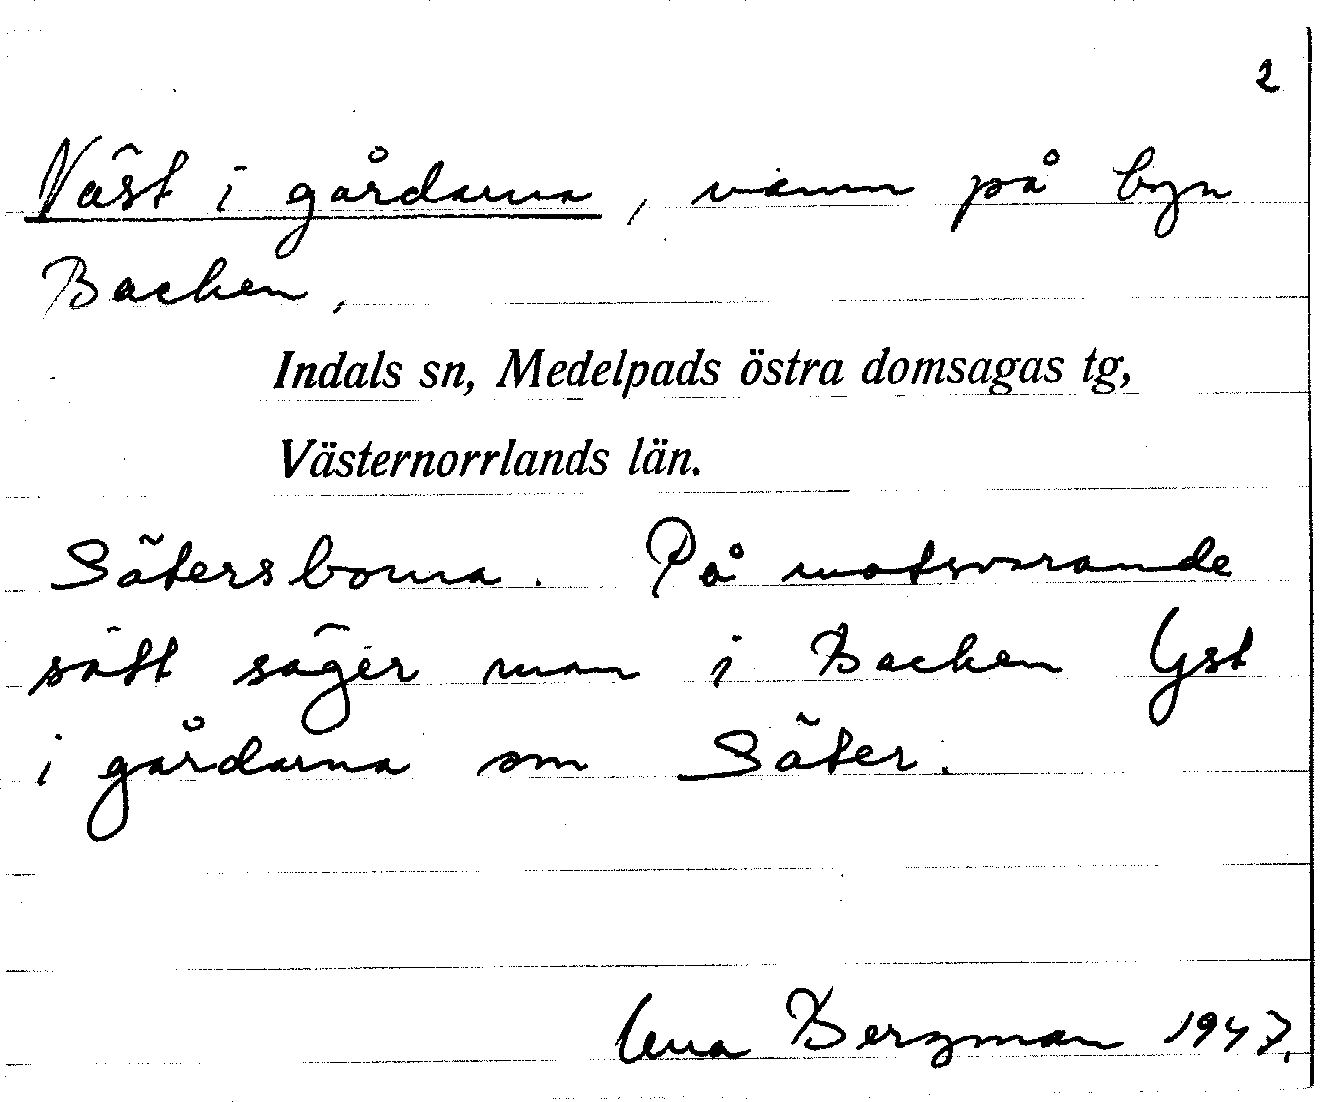 2
Väst i gårdarna, namn på byn
Backen,
Indals sn, Medelpads östra domsagas tg,
Västernorrlands län.
Sätersborna. På motsvarande
sätt säger man i Backen Öst
i gårdarna om Säter.
Bergman 1947.